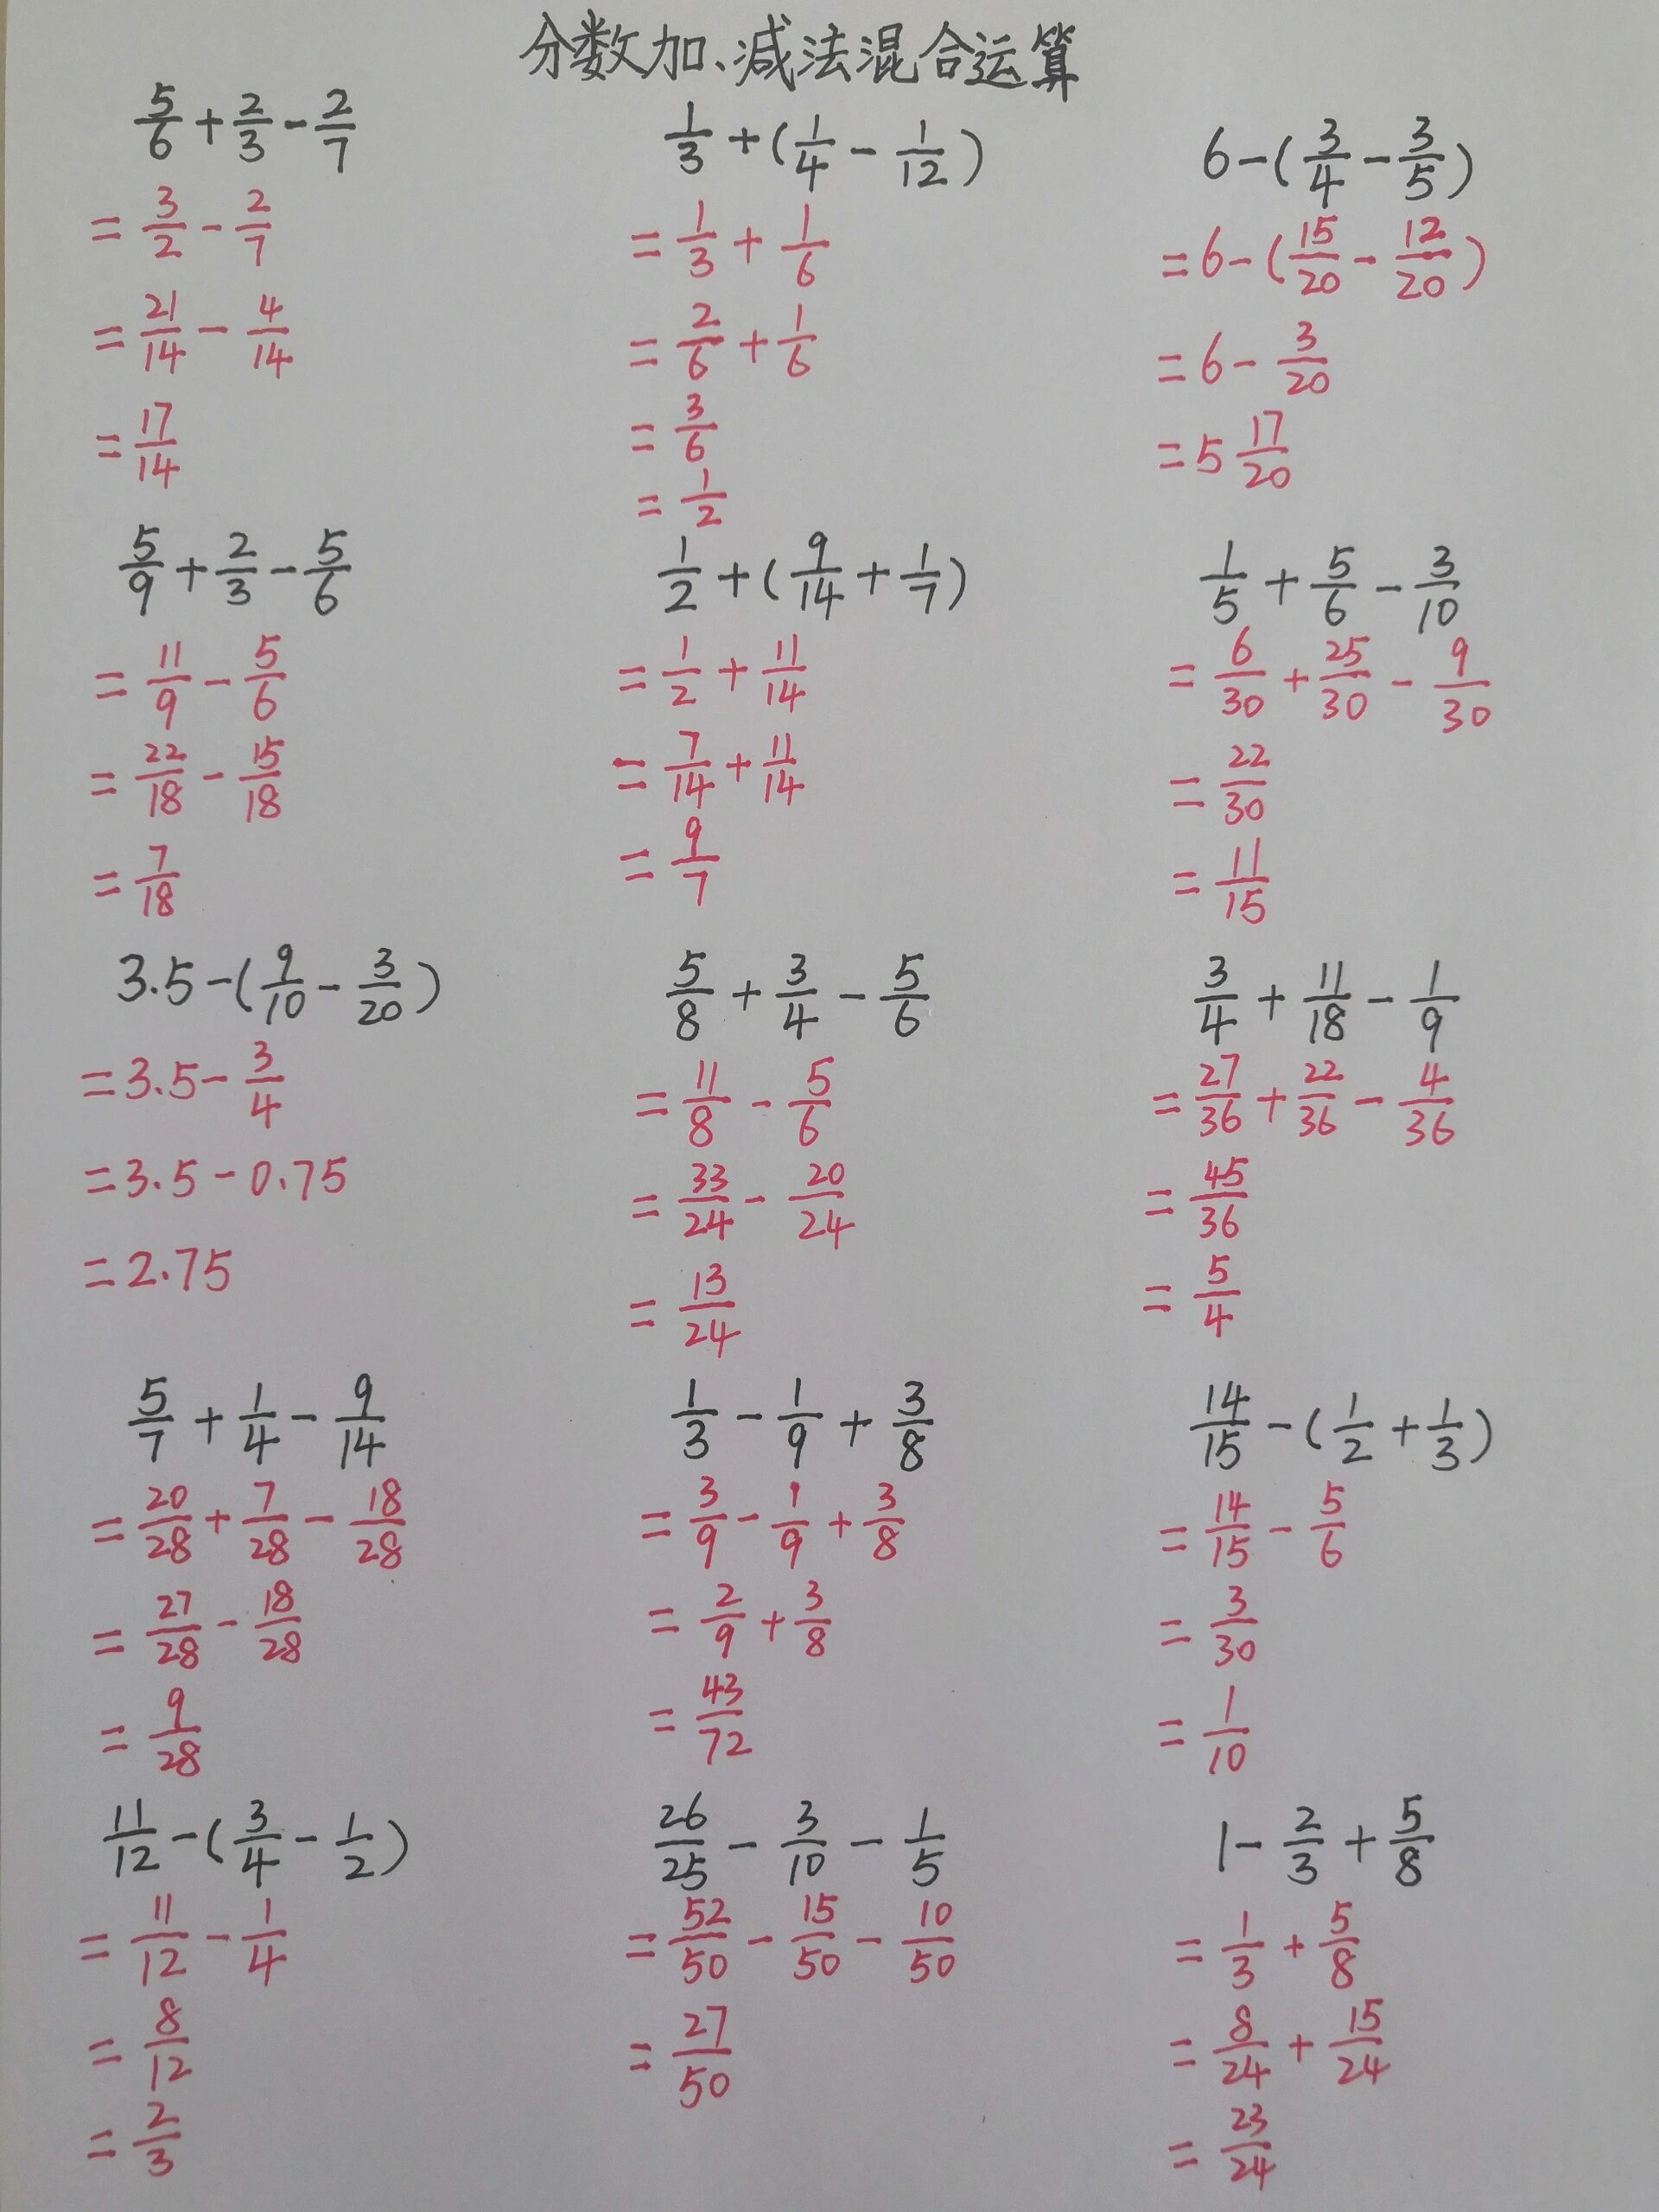 分数加、减法混合运算
5/6 + 2/3 - 2/7
= 3/2 - 2/7
= 21/14 - 4/14
= 17/14
1/3 + (1/4 - 1/12)
= 1/3 + 1/6
= 2/6 + 1/6
= 3/6
= 1/2
6 - (3/4 - 3/5)
= 6 - (15/20 - 12/20)
= 6 - 3/20
= 5 17/20
5/9 + 2/3 - 5/6
= 11/9 - 5/6
= 22/18 - 15/18
= 7/18
1/2 + (9/14 + 1/7)
= 1/2 + 11/14
= 7/14 + 11/14
= 9/7
1/5 + 5/6 - 3/10
= 6/30 + 25/30 - 9/30
= 22/30
= 11/15
3.5 - (9/10 - 3/20)
= 3.5 - 3/4
= 3.5 - 0.75
= 2.75
5/8 + 3/4 - 5/6
= 11/8 - 5/6
= 33/24 - 20/24
= 13/24
3/4 + 11/18 - 1/9
= 27/36 + 22/36 - 4/36
= 45/36
= 5/4
5/7 + 1/4 - 9/14
= 20/28 + 7/28 - 18/28
= 27/28 - 18/28
= 9/28
1/3 - 1/9 + 3/8
= 3/9 - 1/9 + 3/8
= 2/9 + 3/8
= 43/72
14/15 - (1/2 + 1/3)
= 14/15 - 5/6
= 3/30
= 1/10
11/12 - (3/4 - 1/2)
= 11/12 - 1/4
= 8/12
= 2/3
26/25 - 3/10 - 1/5
= 52/50 - 15/50 - 10/50
= 27/50
1 - 2/3 + 5/8
= 1/3 + 5/8
= 8/24 + 15/24
= 23/24